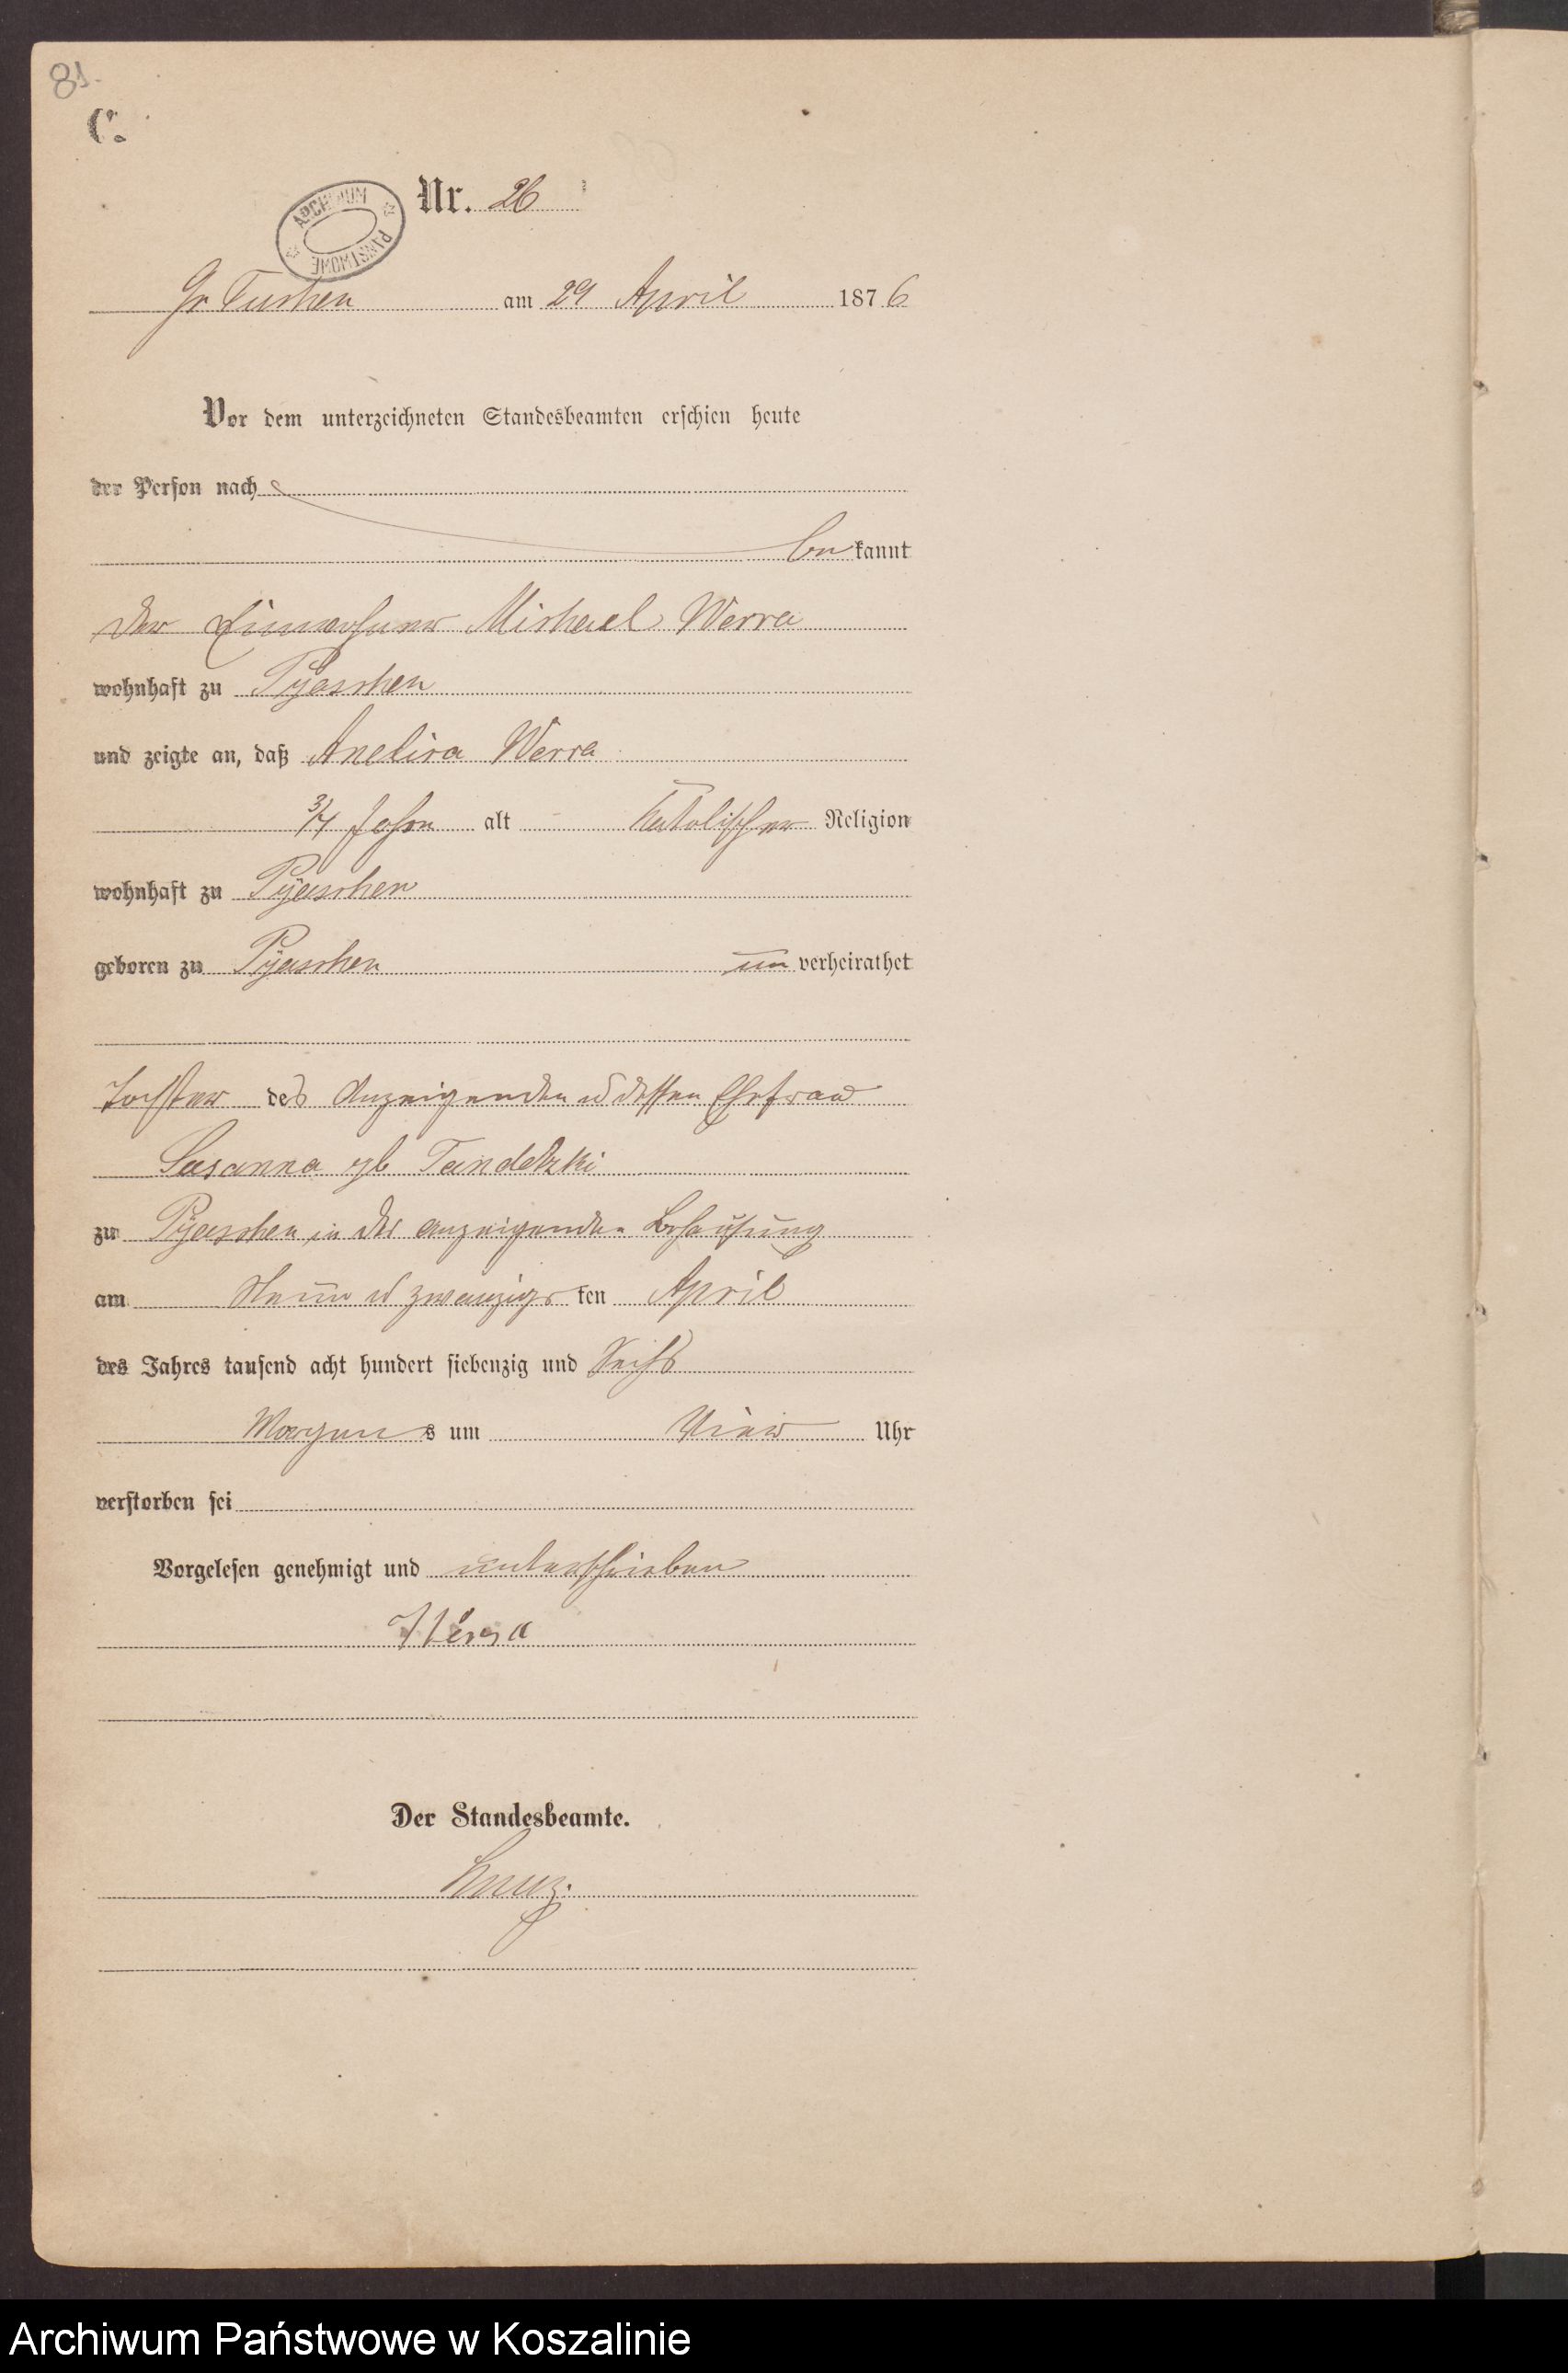 81.
C.
Nr. 26
ARCHIWUM PAŃSTWOWE
Gr Tuchen am 29 April 1876
Vor dem unterzeichneten Standesbeamten erschien heute
der Person nach
bekannt
der Einwohner Michael Werra
wohnhaft zu Pyaschen
und zeigte an, daß Anelica Werra
3/4 Jahr alt katolischer Religion
wohnhaft zu Pyaschen
geboren zu Pyaschen unverheirathet
Tochter des Anzeigenden u dessen Ehefrau
Susanna gb
zu Pyaschen in des anzeigenden Behausung
am Neun u zwanzigsten April
des Jahres tausend acht hundert siebenzig und Sechs
Morgens um Vier Uhr
verstorben sei
Vorgelesen genehmigt und unterschrieben
Werra
Der Standesbeamte.
Archiwum Państwowe w Koszalinie